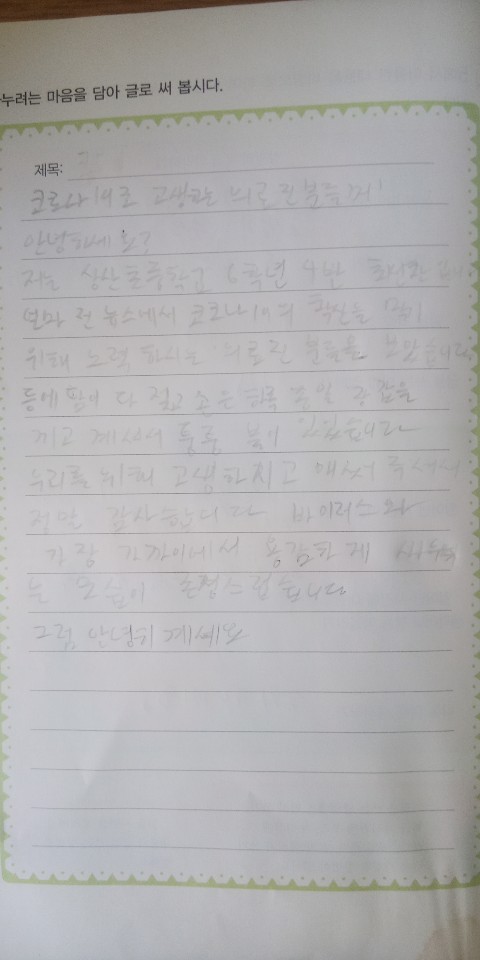 누려는 마음을 담아 글로 써 봅시다.
제목:
코로나19로 고생하는 의료진분들께
안녕하세요?
저는 상산초등학교 6학년 9반
얼마 전 뉴스에서 코로나19의 확산을 막기
위해 노력 하시는 의료진 분들을 보았습니다.
등에 땀이 다 젖고 손은 하루 종일 장갑을
끼고 계셔서 퉁퉁 불어 있었습니다
우리를 위해 고생하시고 애써 주셔서
정말 감사합니다 바이러스와
가장 가까이에서 용감하게
는 모습이 존경스럽습니다.
그럼 안녕히 계세요